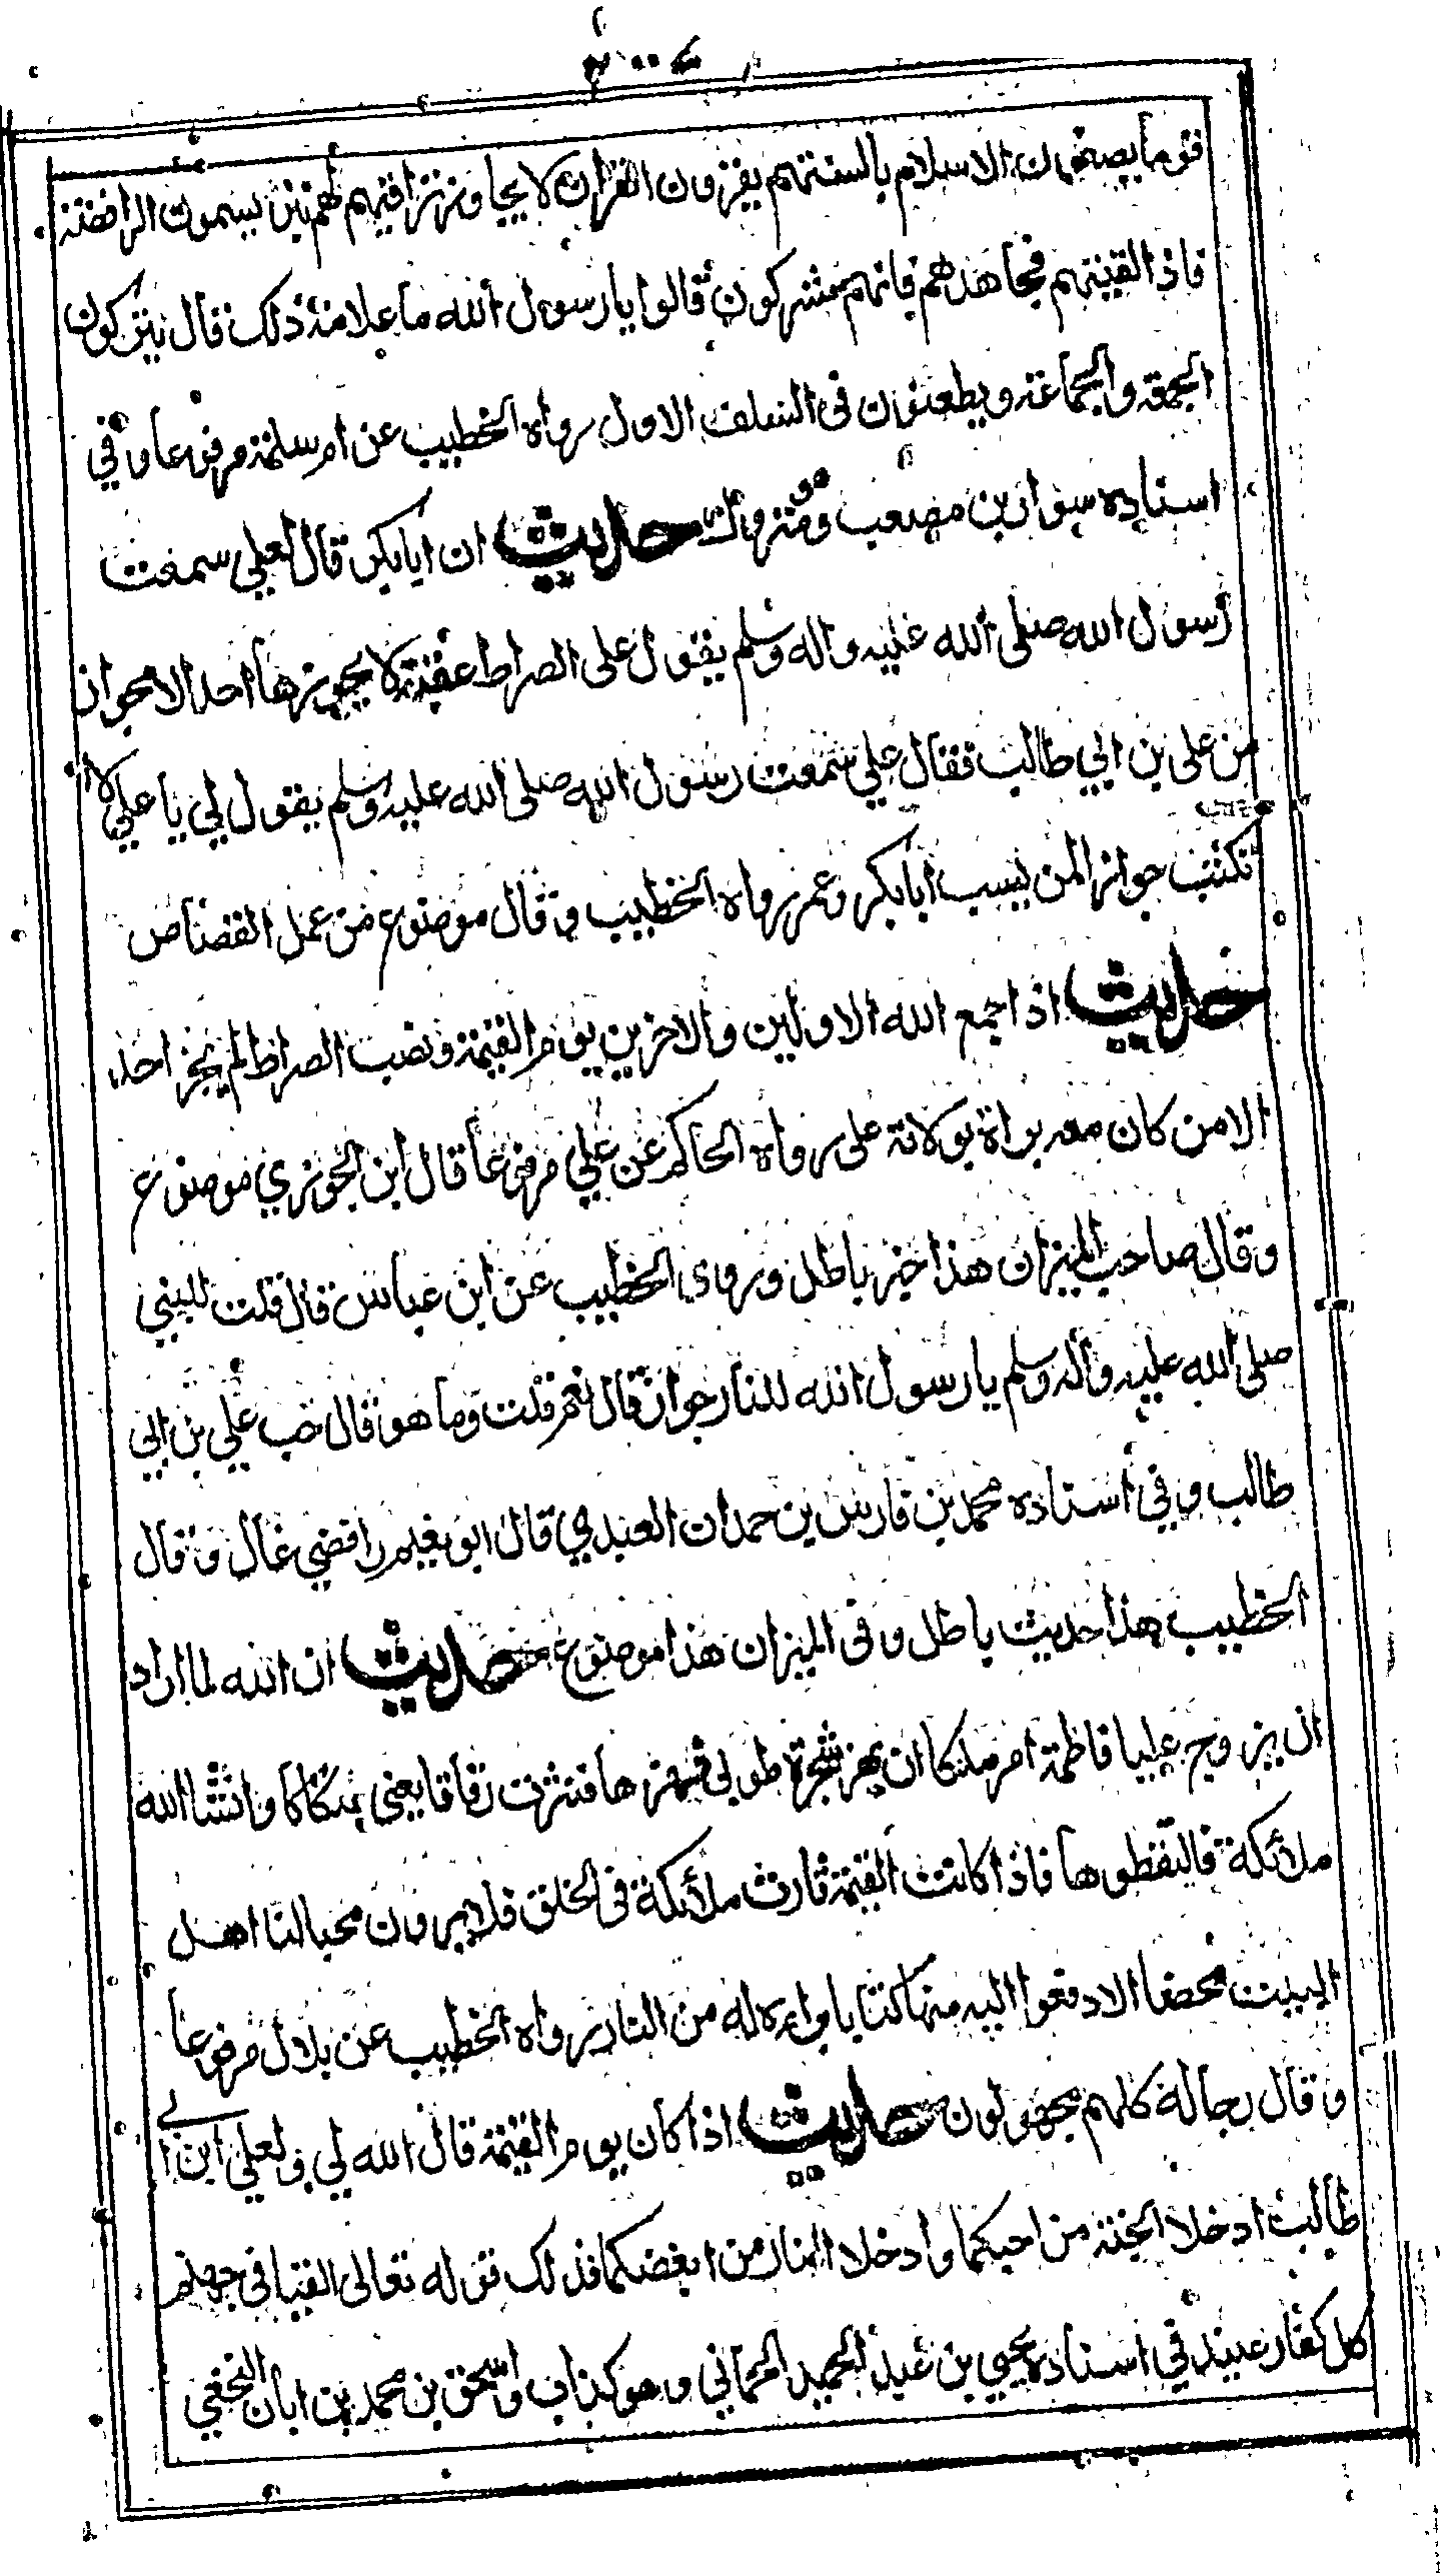 قوما يصفون الاسلام بالسنتهم يقرؤن القران لا يجاوز تراقيهم لهم نبز يسمون الرافضة
فاذا لقيتهم فجاهدهم فانهم مشركون قالوا يا رسول الله ما علامة ذلك قال يتركون
الجمعة والجماعة ويطعنون فى السلف الاول رواه الخطيب عن ام سلمة مرفوعا وفي
اسناده سوار بن مصعب متروك حديث ان ابابكر قال لعلي سمعت
رسول الله صلى الله عليه واله وسلم يقول على الصراط عقبة لا يجوزها احد الا بجواز
من على بن ابي طالب فقال علي سمعت رسول الله صلى الله عليه وسلم يقول لي يا علي لا
تكتب جوازا لمن يسب ابابكر وعمر رواه الخطيب وقال موضوع من عمل القصاص
حديث اذا جمع الله الاولين والاخرين يوم القيمة ونصب الصراط لم يجز احد
الا من كان معه براة بولاية على رواه الحاكم عن علي مرفوعا قال ابن الجوزي موضوع
وقال صاحب الميزان هذا خبر باطل وروى الخطيب عن ابن عباس قال قلت للنبي
صلى الله عليه واله وسلم يا رسول الله للنار جواز قال نعم قلت وما هو قال حب علي بن ابي
طالب وفي اسناده محمد بن فارس بن حمدان العبدي قال ابو نعيم رافضي غال وقال
الخطيب هذا حديث باطل وفى الميزان هذا موضوع حديث ان الله لما اراد
ان يزوج عليا فاطمة امر ملكا ان يهز شجرة طوبى فهزها فنثرت رقاقا يعنى صكاكا وانشا الله
ملائكة فالتقطوها فاذا كانت القيمة ثارت ملائكة فى الخلق فلا يرون محبا لنا اهل
البيت محضا الا دفعوا اليه منها كتابا براءة له من النار رواه الخطيب عن بلال مرفوعا
وقال رجاله كلهم مجهولون حديث اذا كان يوم القيمة قال الله لي ولعلي ابن ابي
طالب ادخلا الجنة من احبكما وادخلا النار من ابغضكما فذلك قوله تعالى القيا فى جهنم
كل كفار عنيد في اسناده يحيى بن عبد الحميد الحماني وهو كذاب واسحق بن محمد بن ابان النخعي